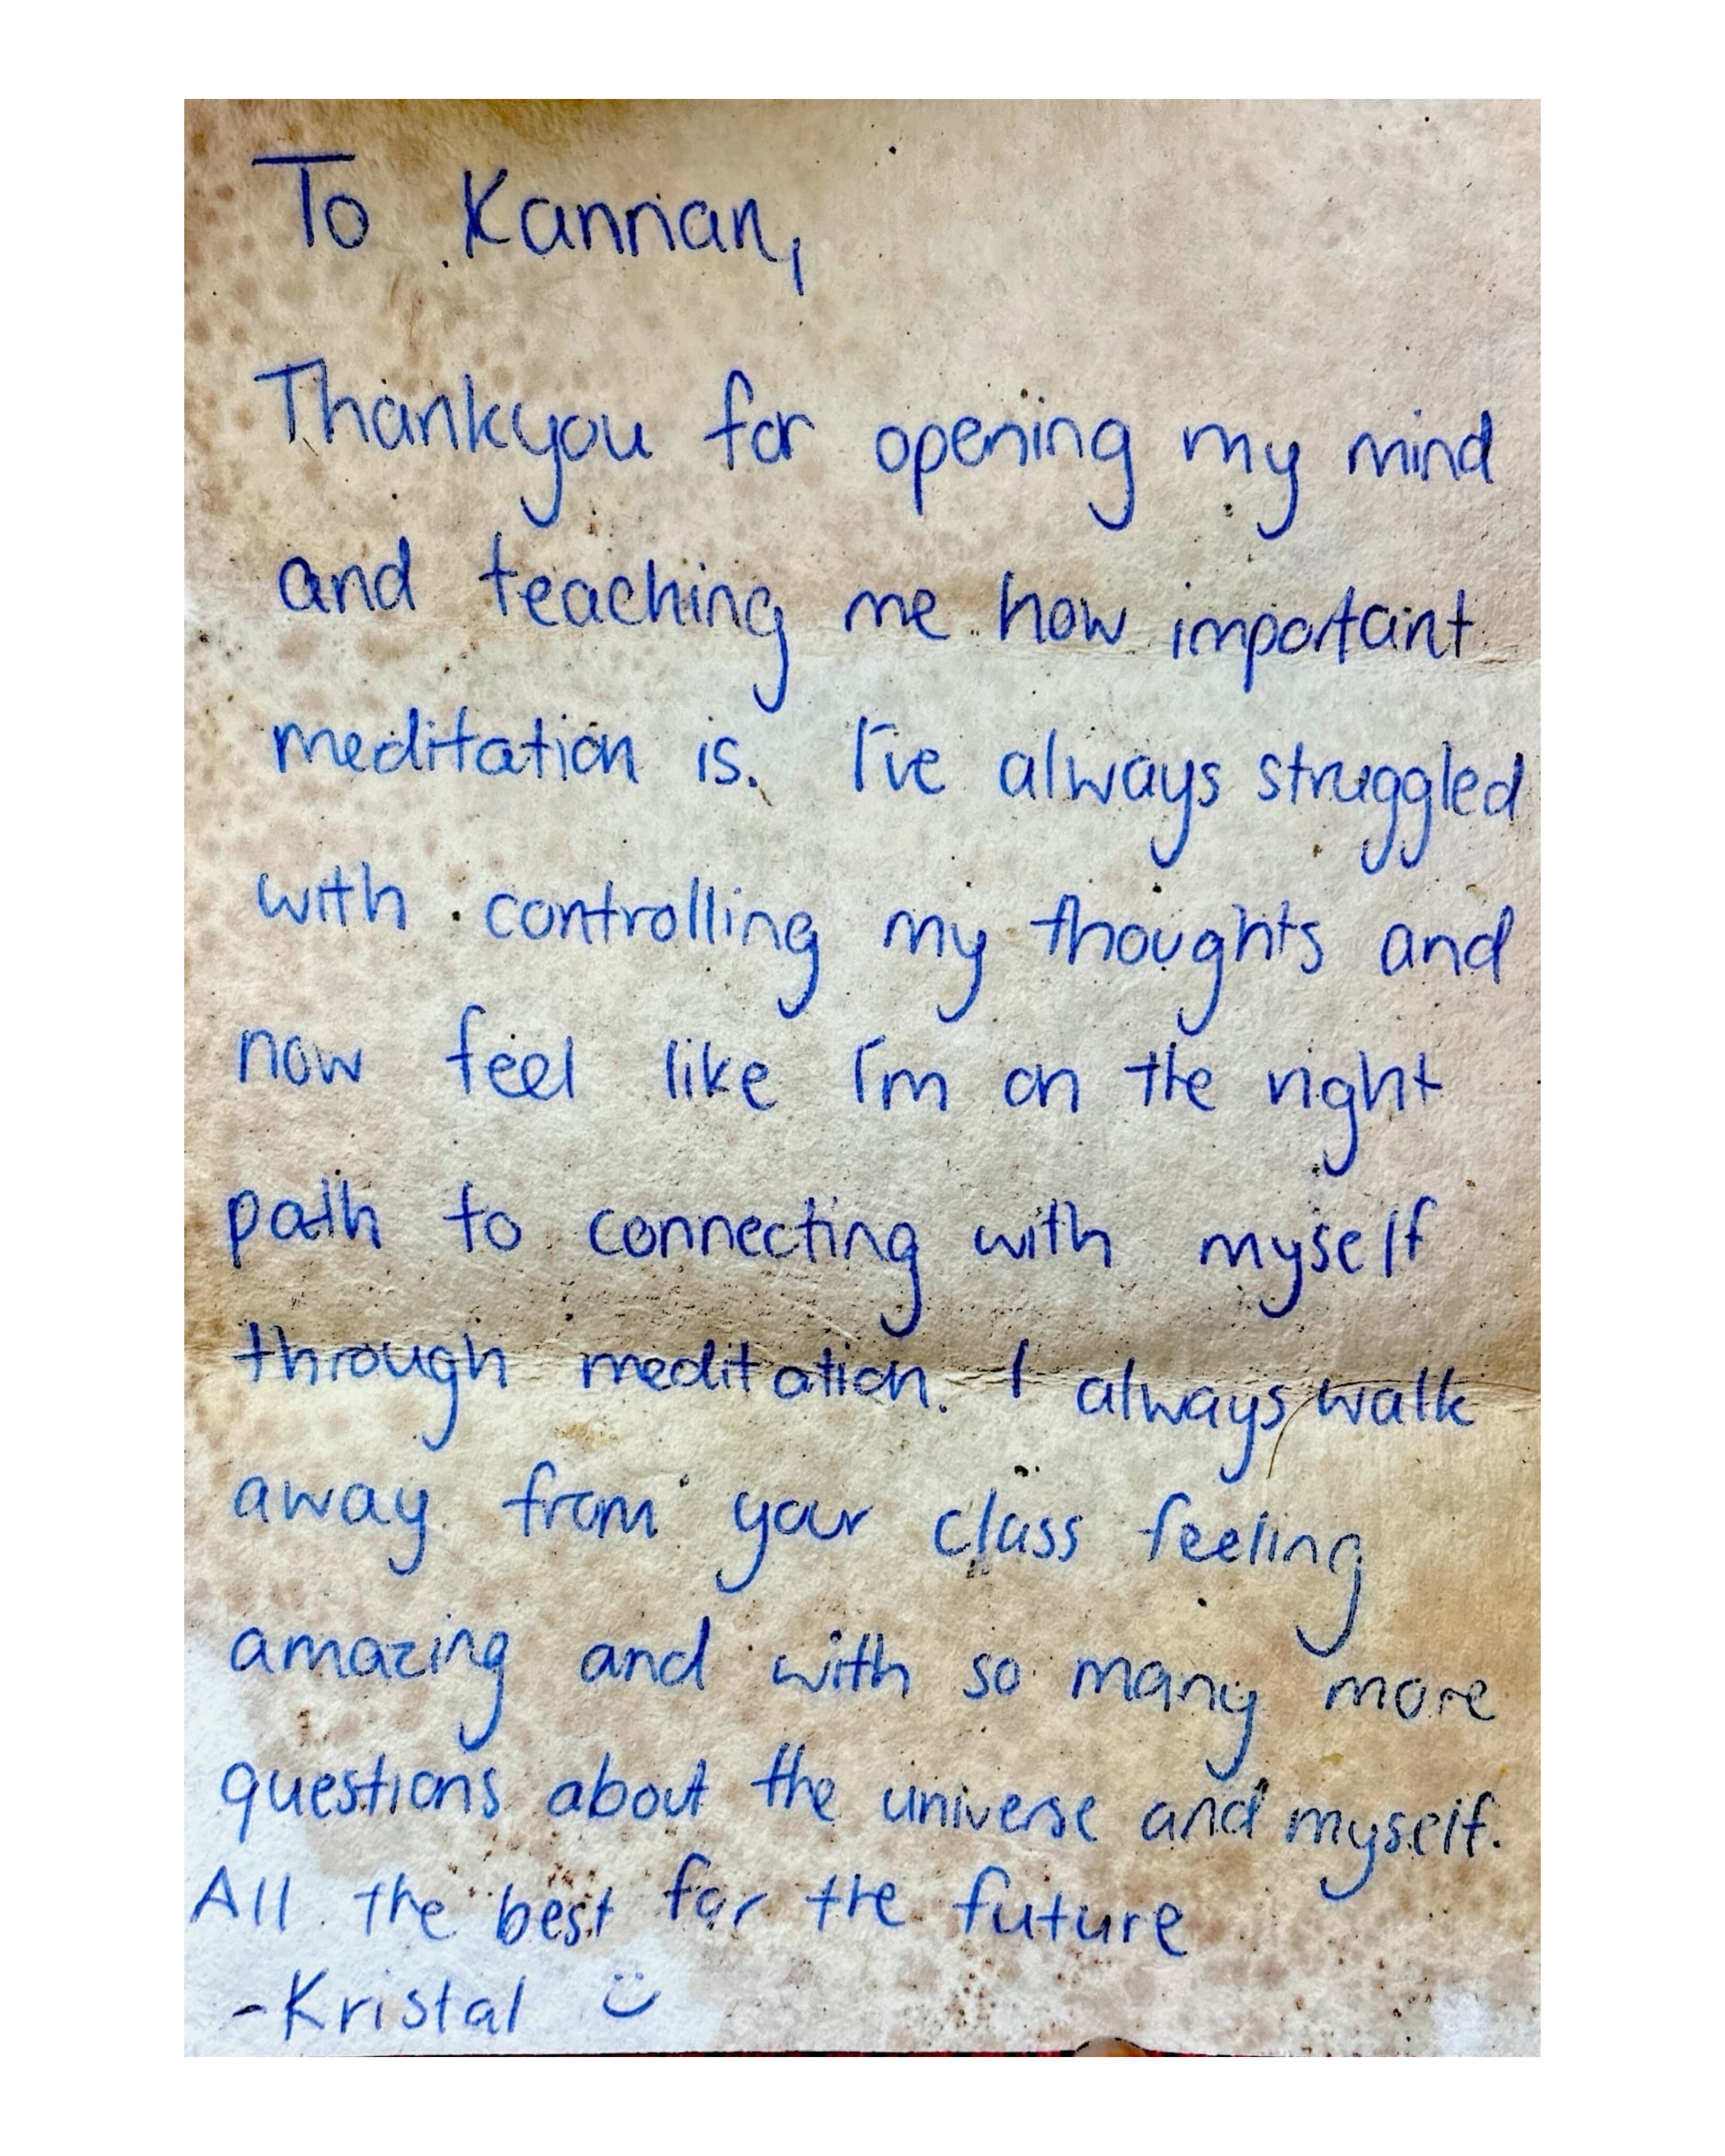 To Kannan,
Thankyou for opening my mind
and teaching me how important
meditation is. I've always struggled
with controlling my thoughts and
now feel like I'm on the right
path to connecting with myself
through meditation. I always walk
away from your class feeling
amazing and with so many more
questions about the universe and myself.
All the best for the future
-Kristal ü